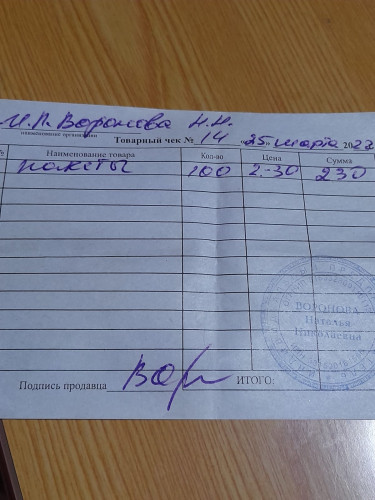 И.П. Воронова Н.Н.
наименование организации
Товарный чек № 14 „25" марта 2022
№ Наименование товара Кол-во Цена Сумма
пакеты 100 2-30 230
ВОРОНОВА
Наталья
Николаевна
Подпись продавца Вор ИТОГО: